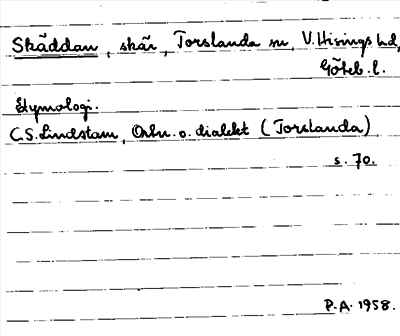 Skäddan, skär, Torslanda sn, V. Hisings hd,
Göteb. l.
Etymologi.
C.S. Lindstam, Ortn. o. dialekt (Torslanda)
s. 70.
P.A. 1958.